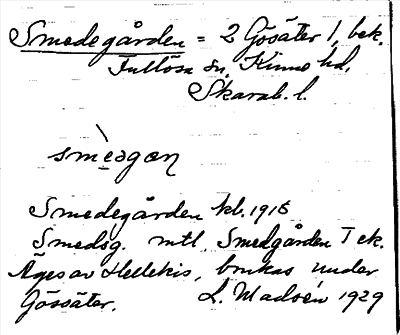 Smedegården = 2 Gössäter 1, bek.
Fullösa sn. Kinne hd.
Skarab. l.
smèagan
Smedegården kb. 1915
Smedsg. mtl. Smedgården T ek.
Äges av Hellekis, brukas under
Gössäter. L. Madsén 1929